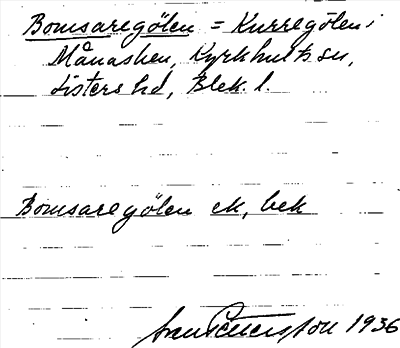 Bomsaregölen = Kurregölen i
Månashen, Kyrkhults sn,
Listers hd, Blek. l.
Bomsaregölen ek, bek
Pettersson 1936